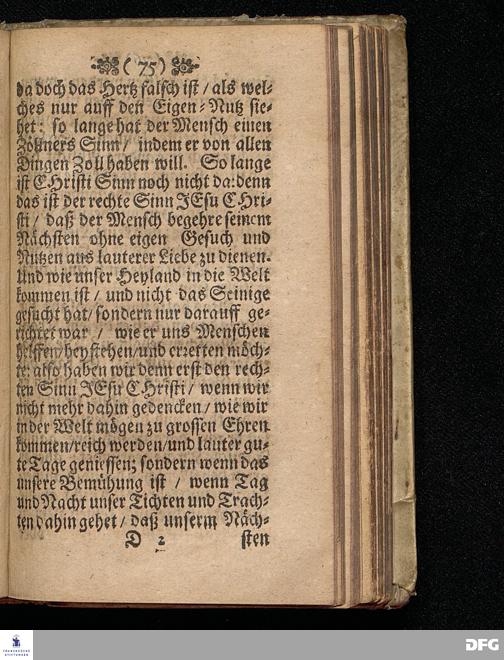 ( 75 )
da doch das Hertz falsch ist / als wel-
ches nur auff den Eigen-Nutz sie-
het: so lange hat der Mensch einen
Zöllners Sinn / indem er von allen
Dingen Zoll haben will. So lange
ist CHristi Sinn noch nicht da: denn
das ist der rechte Sinn JEsu CHri-
sti / daß der Mensch begehre seinem
Nächsten ohne eigen Gesuch und
Nutzen aus lauterer Liebe zu dienen.
Und wie unser Heyland in die Welt
kommen ist / und nicht das Seinige
gesucht hat / sondern nur darauff ge-
richtet war / wie er uns Menschen
helffen / beystehen / und erretten möch-
te: also haben wir denn erst den rech-
ten Sinn JEsu CHristi / wenn wir
nicht mehr dahin gedencken / wie wir
in der Welt mögen zu grossen Ehren
kommen / reich werden / und lauter gu-
te Tage geniessen; sondern wenn das
unsere Bemühung ist / wenn Tag
und Nacht unser Tichten und Trach-
ten dahin gehet / daß unserm Näch-
D 2 sten
FRANCKESCHE
STIFTUNGEN
DFG